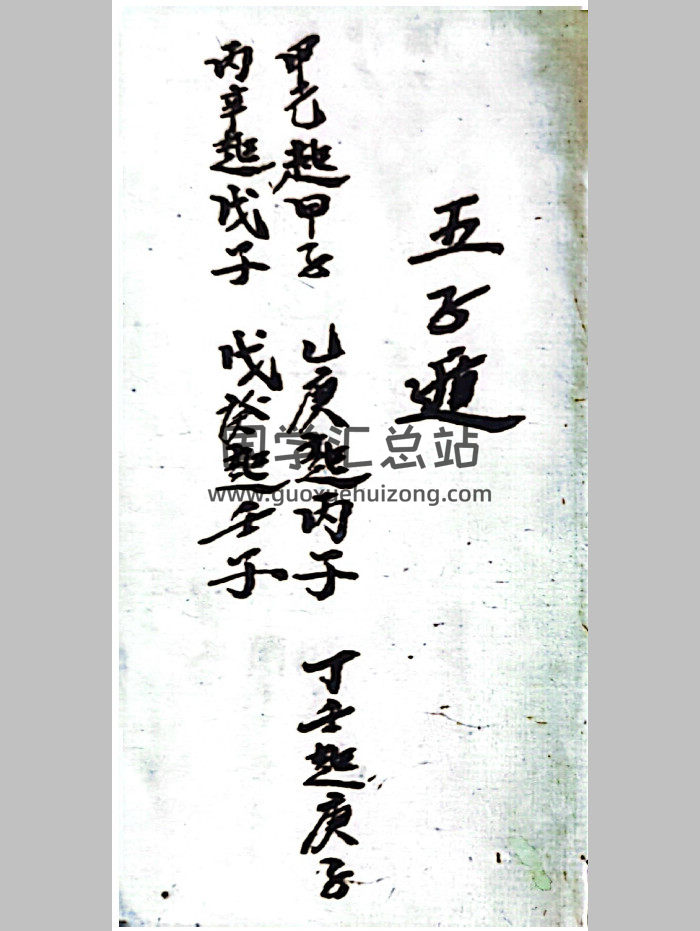 五子遁
甲己起甲子 乙庚起丙子 丁壬起庚子
丙辛起戊子 戊癸起壬子
国学汇总站
www.guoxuehuizong.com